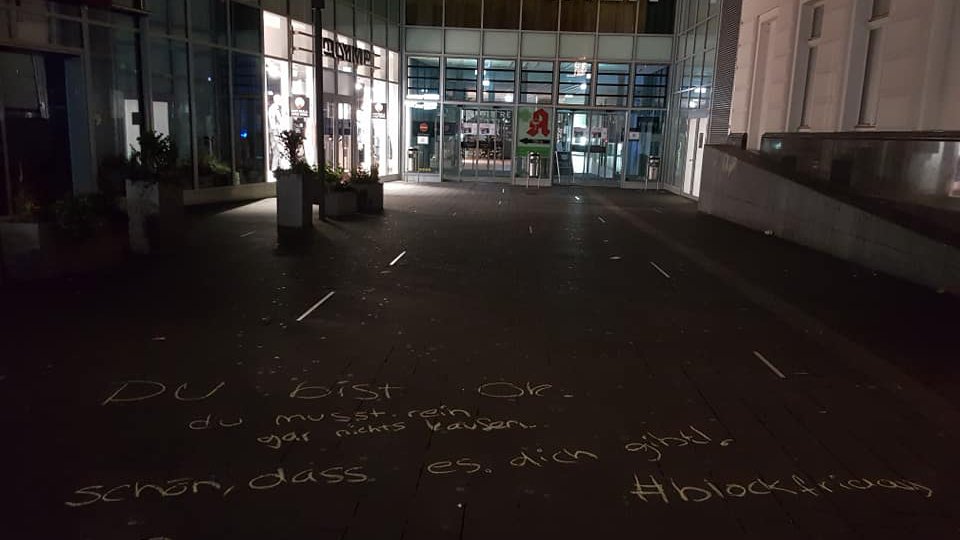 DU bist OK.
du musst rein
gar nichts kaufen.
schön, dass es dich gibt!
#blockfriday